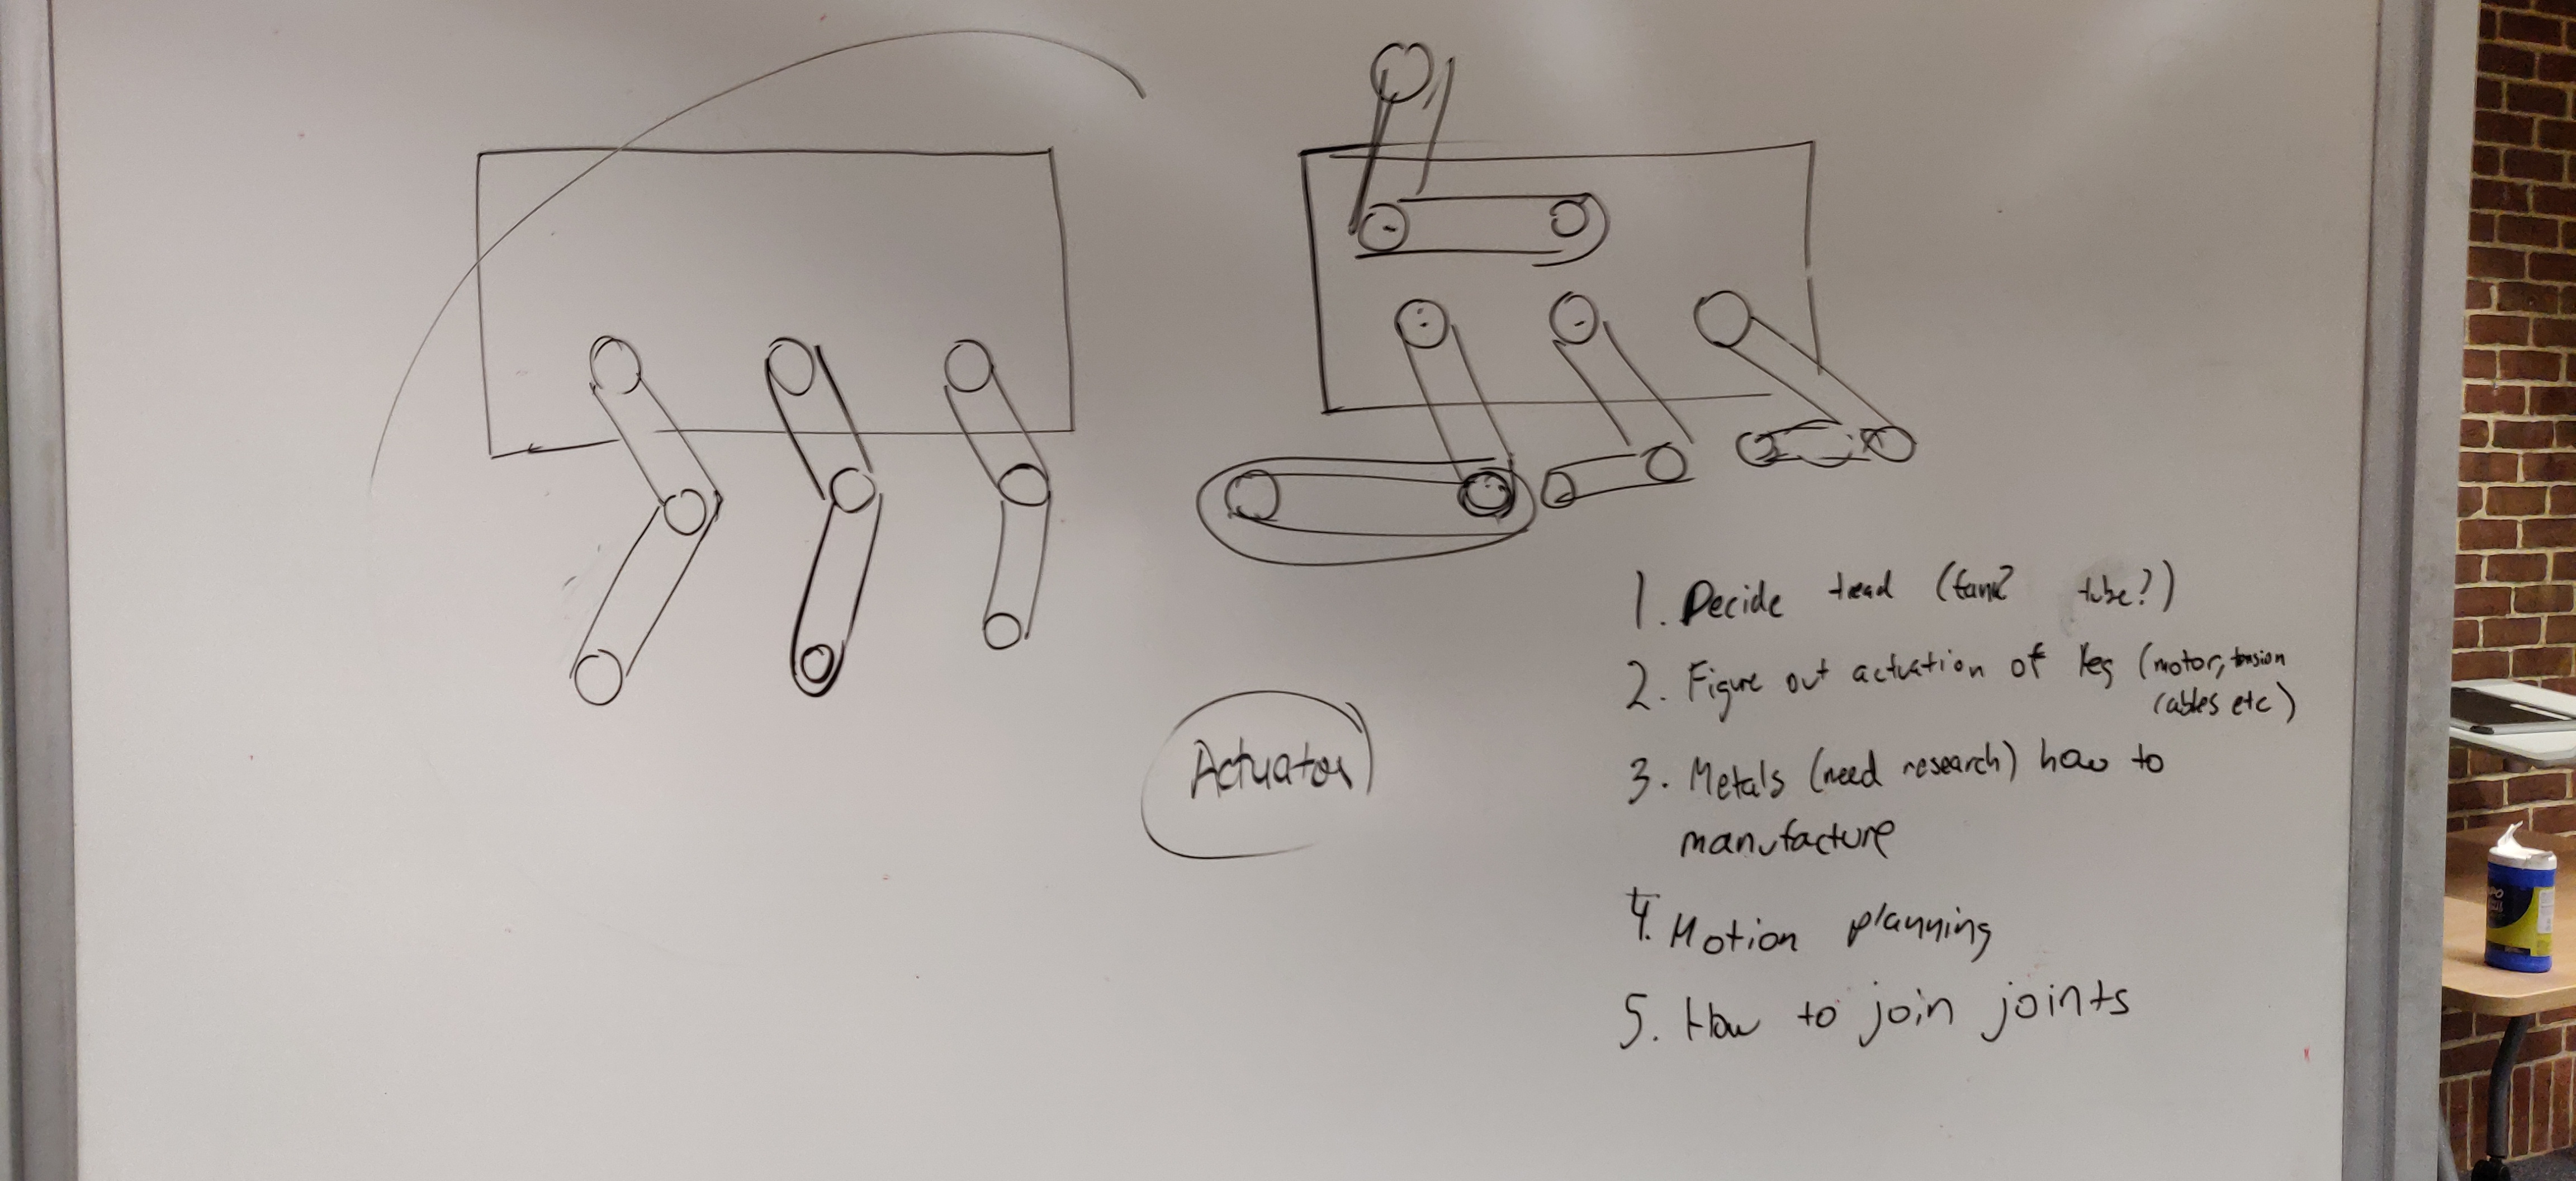 Actuator
1. Decide tread (tank? tube?)
2. Figure out actuation of leg (motor, tension
cables etc)
3. Metals (need research) how to
manufacture
4. Motion planning
5. How to join joints